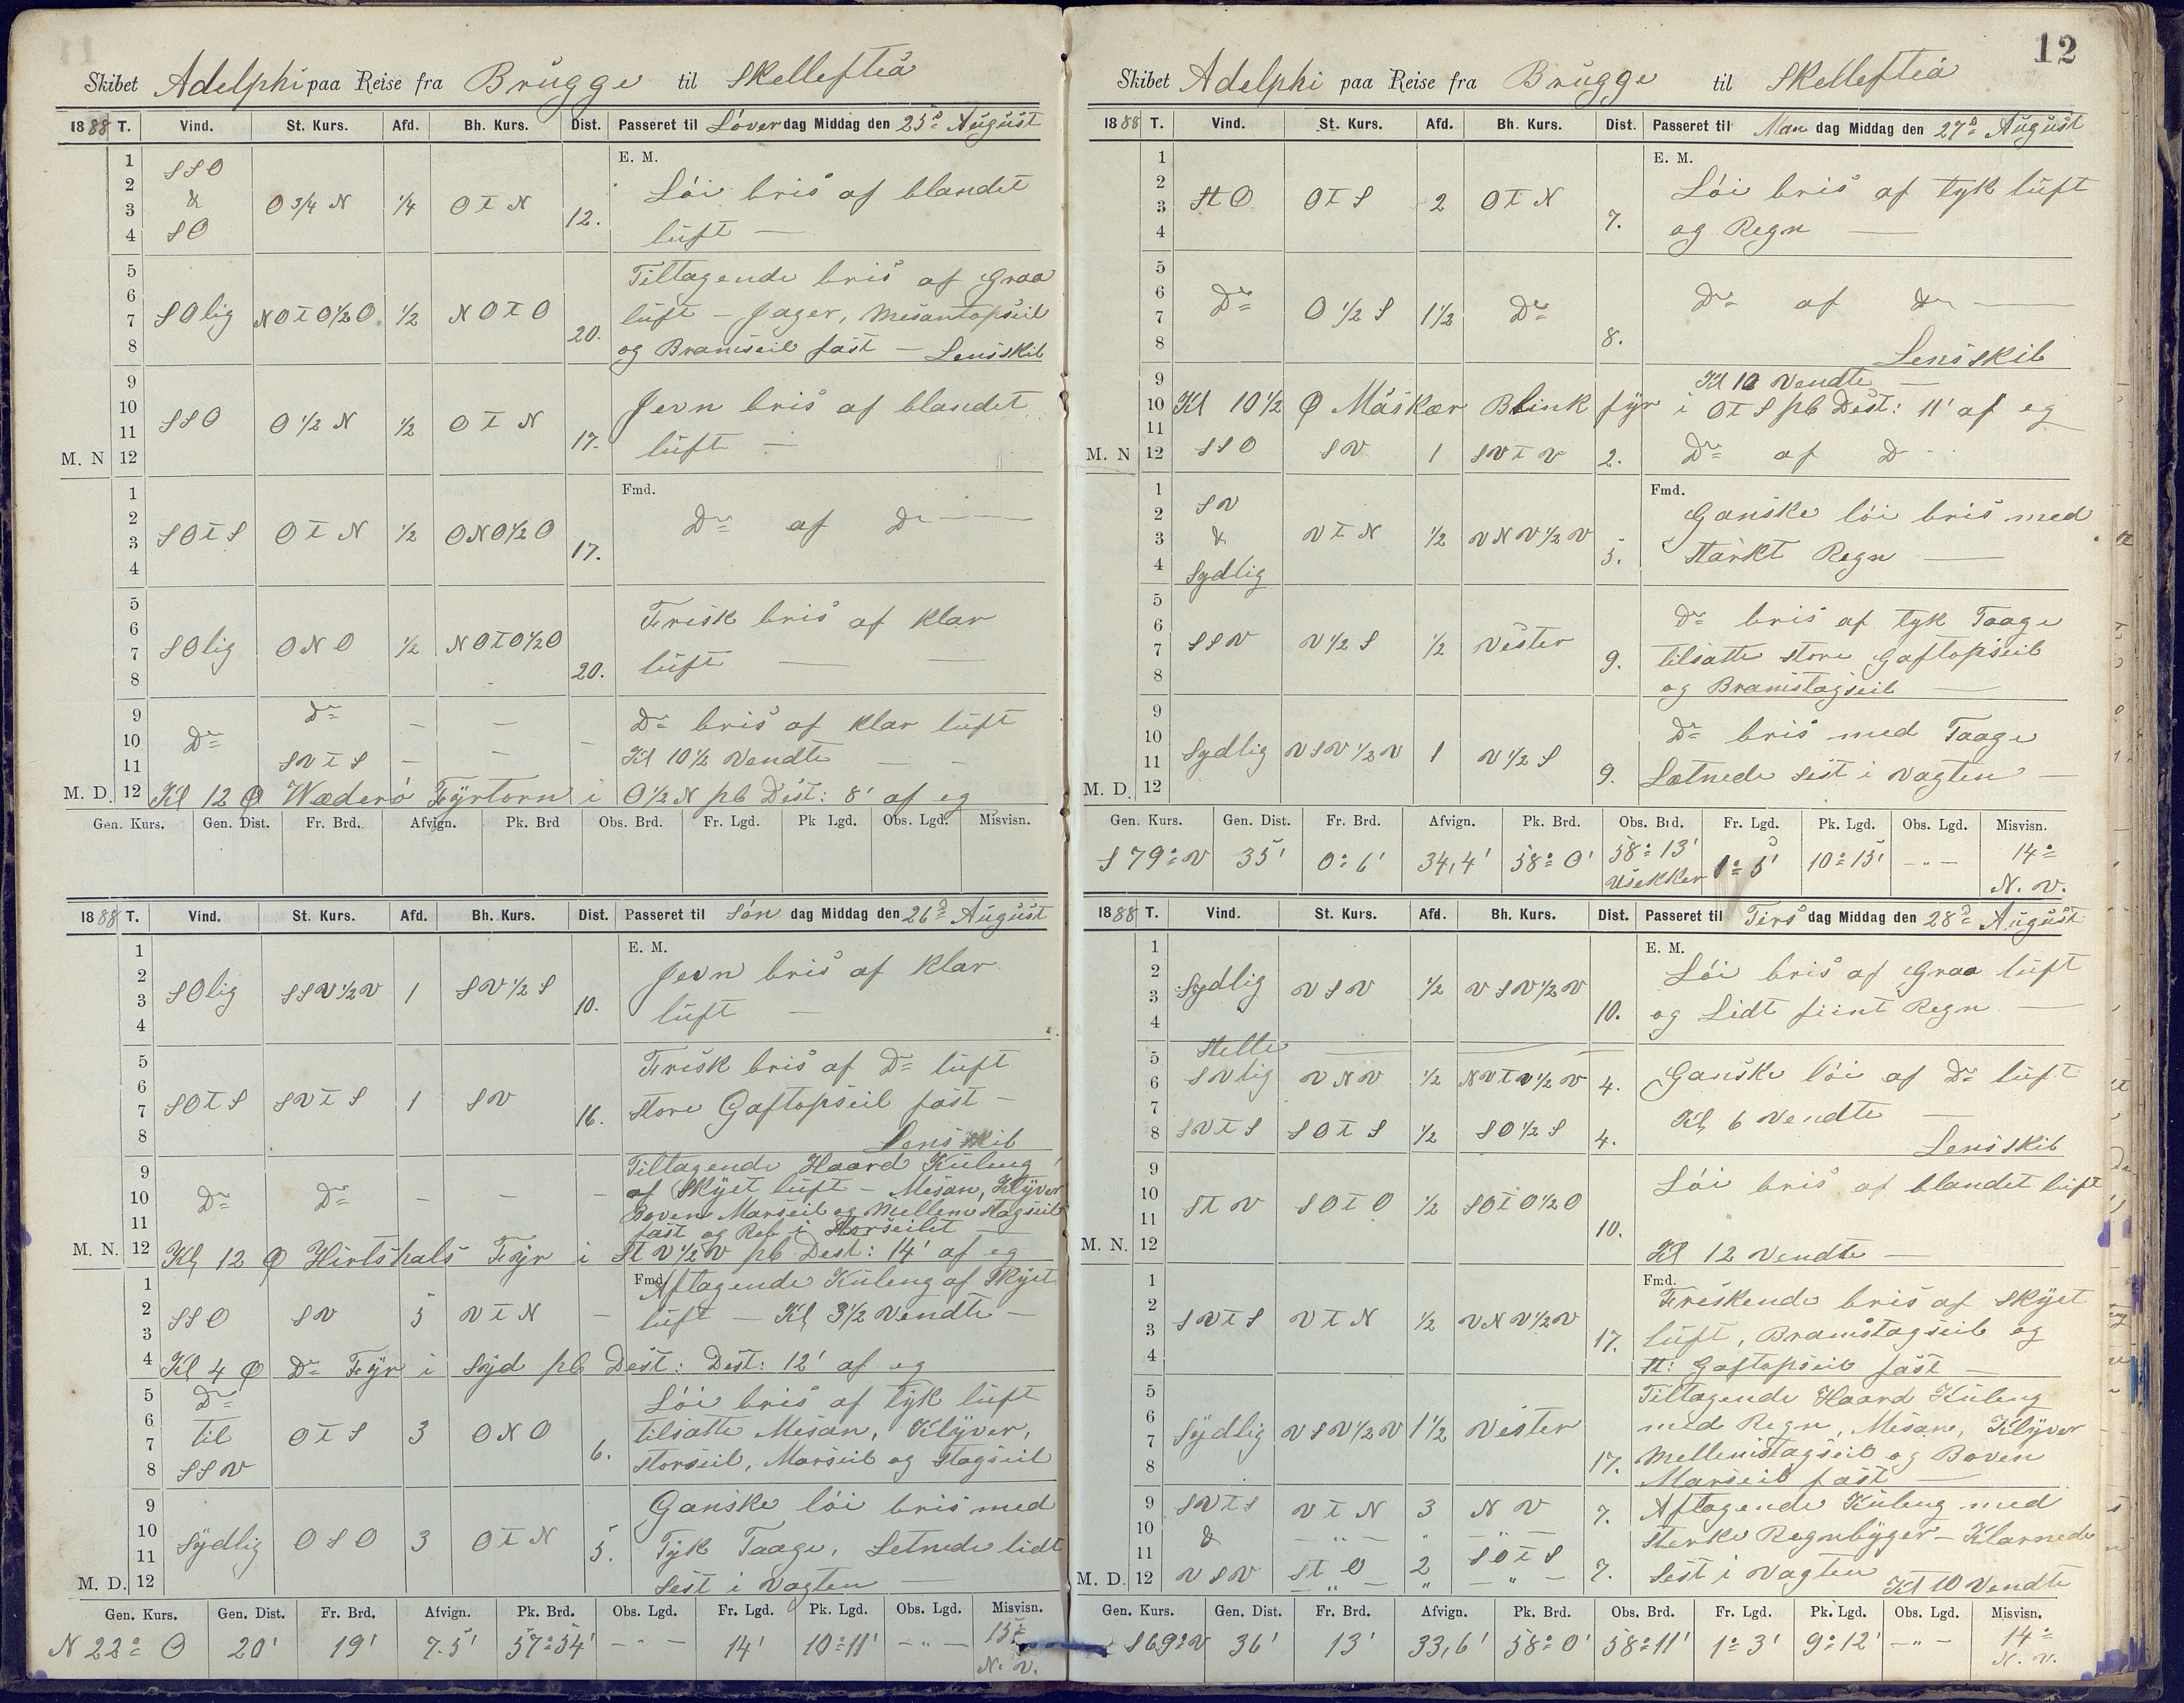 12
Skibet Adelphi paa Reise fra Brügge til Skellefteå
1888 T. Vind. St. Kurs. Afd. Bh. Kurs. Dist. Passeret til Löverdag Middag den 25de August
E. M.
1 2 3 4 SSO & SO O 3/4 N 1/4 O t N 12. Löi bris af blandet
lüft —
5 6 7 8 SOlig NOtO1/2O 1/2 NOtO 20. Tiltagende bris af Graa
lüft — Jager, Mesantopseil
og Bramseil fast — Lensskib
9 10 11 M. N 12 SSO O 1/2 N 1/2 O t N 17. Jevn bris af blandet
lüft —
Fmd.
1 2 3 4 SOtS O t N 1/2 ONO1/2O 17. Do af Do —
5 6 7 8 SOlig ONO 1/2 NOtO1/2O 20. Frisk bris af klar
lüft — —
9 10 11 Do Do — — — Do bris af klar lüft
SVtS — — Kl 10 1/2 Vendte — —
M. D. 12 Kl 12 Φ Wæderö Fyrtorn i O 1/2 N pb Dist: 8' af eg
Gen. Kurs. Gen. Dist. Fr. Brd. Afvign. Pk. Brd Obs. Brd. Fr. Lgd. Pk Lgd. Obs. Lgd. Misvisn.
1888 T. Vind. St. Kurs. Afd. Bh. Kurs. Dist. Passeret til Søndag Middag den 26de August
E. M.
1 2 3 4 SOlig SSV1/2V 1 SV1/2S 10. Jevn bris af klar
lüft —
5 6 7 8 SOtS SVtS 1 SV 16. Frisk bris af Do lüft
store Gaftopseil fast —
Lensskib
9 10 11 Do Do — — — Tiltagende Haard Küling
af Skyet lüft — Mesan, Klÿver
Boven Marseil og Mellemstagseil
fast og Reb i Storseilet —
M. N. 12 Kl, 12 Φ Hirtshals Fÿr i St V 1/2 V pb Dest: 14' af eg
Fmd.
1 2 3 SSO SV 5 VtN — Aftagende Küling af Skyet
lüft — Kl, 3 1/2 Vendte —
4 Kl 4 Φ Do Fÿr i Syd pb Dest: Dest: 12' af eg
5 6 7 8 Do til SSV OtS 3 ONO 6. Löi bris af tyk lüft
tilsatte Mesan, Klÿver,
Storseil, Marseil og Stagseil
9 10 11 M. D. 12 Sÿdlig OSO 3 OtN 5. Ganske löi bris med
Tyk Taage, Letnede lidt
Sest i Vagten —
Gen. Kurs. Gen. Dist. Fr. Brd. Afvign. Pk. Brd. Obs. Lgd. Fr. Lgd. Pk. Lgd. Obs. Lgd. Misvisn.
N 22° O 20' 19' 7.5' 57°54' — „ — 14' 10°11' — „ — 15° N. V.
Skibet Adelphi paa Reise fra Brügge til Skellefteå
1888 T. Vind. St. Kurs. Afd. Bh. Kurs. Dist. Passeret til Mandag Middag den 27de August
E. M.
1 2 3 4 StO OtS 2 OtN 7. Löi bris af tyk lüft
og Regn —
5 6 7 8 Do O 1/2 S 1 1/2 Do 8. Do af Do —
Lensskib
9 Kl 10 Vendte —
10 Kl 10 1/2 Φ Mäskær Blink fÿr i OtS pb Dest: 11' af eg
11 M. N 12 SSO SV 1 SVtV 2. Do af D
Fmd.
1 2 3 4 SV & Sydlig VtN 1/2 VNV1/2V 5. Ganske löi bris med
Starkt Regn —
5 6 7 8 SSV V1/2S 1/2 Vester 9. Do bris af tyk Taage
tilsatte store Gaftopseil
og Bramstagseil —
9 10 11 M. D. 12 Sydlig VSV1/2V 1 V1/2S 9. Do bris med Taage
Lætnede Sest i Vagten —
Gen. Kurs. Gen. Dist. Fr. Brd. Afvign. Pk. Brd. Obs. Brd. Fr. Lgd. Pk. Lgd. Obs. Lgd. Misvisn.
S 79° V 35' 0°6' 34,4' 58°0' 58°13' Usekker 1°5' 10°15' — „ — 14° N. V.
1888 T. Vind. St. Kurs. Afd. Bh. Kurs. Dist. Passeret til Tirsdag Middag den 28de August
E. M.
1 2 3 4 Sydlig VSV 1/2 VSV1/2V 10. Löi bris af Graa lüft
og Lidt fiint Regn —
5 6 Stille SVlig VNV 1/2 NVtV1/2V 4. Ganske löi af Do lüft
7 8 SVtS SOtS 1/2 SO1/2S 4. Kl, 6 Vendte —
Lensskib
9 10 11 M. N. 12 StV SOtO 1/2 SOtO1/2O 10. Löi bris af blandet lüft
Kl 12 Vendte —
Fmd.
1 2 3 4 SVtS VtN 1/2 VNV1/2V 17. Friskende bris af skÿet
lüft, Bramstagseil og
St: Gaftopseil fast —
5 6 7 8 Sÿdlig VSV1/2V 1 1/2 Vester 17. Tiltagende Haard Küling
med Regn, Mesan, Klÿver
Mellemstagseil og Boven
Marseil fast —
9 SVtS VtN 3 NV 7. Aftagende Küling med
10 & — „ — „ — „ — sterke Regnbÿger — Klarnede
11 M. D. 12 VSV StO 2 SOtS 7. Sest i Vagten Kl 10 Vendte
— „ — „ — „ —
Gen. Kurs. Gen. Dist. Fr. Brd. Afvign. Pk. Brd. Obs. Brd. Fr. Lgd. Pk. Lgd. Obs. Lgd. Misvisn.
S 69° V 36' 13' 33,6' 58°0' 58°11' 1°3' 9°12' — „ — 14° N. V.